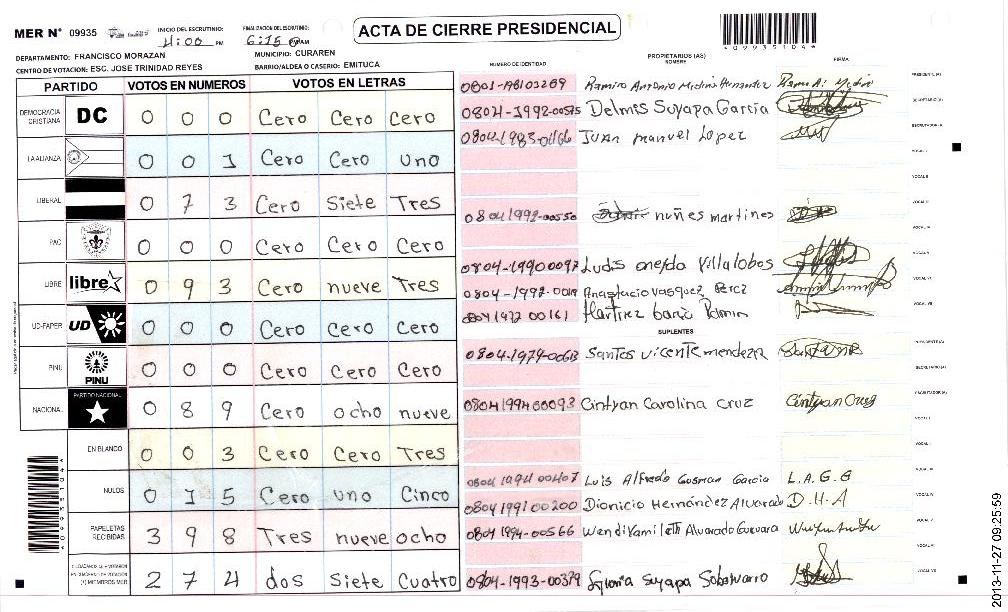 ACTA DE CIERRE PRESIDENCIAL
MER N° 09935
INICIO DEL ESCRUTINIO: 4:00 PM
FINALIZACION DEL ESCRUTINIO: 6:15 AM
*09935104*
DEPARTAMENTO: FRANCISCO MORAZAN
MUNICIPIO: CURAREN
CENTRO DE VOTACION: ESC. JOSE TRINIDAD REYES
BARRIO/ALDEA O CASERIO: EMITUCA
PARTIDO VOTOS EN NUMEROS VOTOS EN LETRAS
DEMOCRACIA CRISTIANA DC 0 0 0 Cero Cero Cero
LA ALIANZA 0 0 1 Cero Cero uno
LIBERAL 0 7 3 Cero Siete Tres
PAC 0 0 0 Cero Cero Cero
LIBRE libre 0 9 3 Cero nueve Tres
UD-FAPER UD 0 0 0 Cero Cero Cero
PINU PINU 0 0 0 Cero Cero Cero
NACIONAL PARTIDO NACIONAL 0 8 9 Cero ocho nueve
EN BLANCO 0 0 3 Cero Cero Tres
NULOS 0 1 5 Cero uno Cinco
PAPELETAS RECIBIDAS 3 9 8 Tres nueve ocho
2 7 4 dos Siete Cuatro
*09935104*
NUMERO DE IDENTIDAD
PROPIETARIOS (AS)
NOMBRE
FIRMA
Ramiro Antonio Medina Hernandez
PRESIDENTE (A)
0804-1992-00575 Delmis Suyapa Garcia
SECRETARIO (A)
Juan manuel Lopez
ESCRUTADOR-A
VOCAL I
VOCAL II
08041992-00550 nuñes martines
VOCAL III
VOCAL IV
0804-19900097 Ludis oneyda Villalobos
VOCAL V
Anastacio Vasquez Perez
VOCAL VI
0804 1972 00161
VOCAL VII
SUPLENTES
PRESIDENTE (A)
0804-1979-00613 Santos Vicente mendez
SECRETARIO (A)
0804199400093 Cintyan Carolina Cruz Cintyan Cruz
ESCRUTADOR (A)
VOCAL I
VOCAL II
Luis Alfredo Gusman Garcia L.A.G.G
VOCAL III
0804 1991 00200 Dionicio Hernández Alvarado D.H.A
VOCAL IV
0804 1994-00566 Wendi Yamileth Alvarado Guevara
VOCAL V
VOCAL VI
0804-1993-00379 Gloria Suyapa
VOCAL VII
2013-11-27 09:25:59